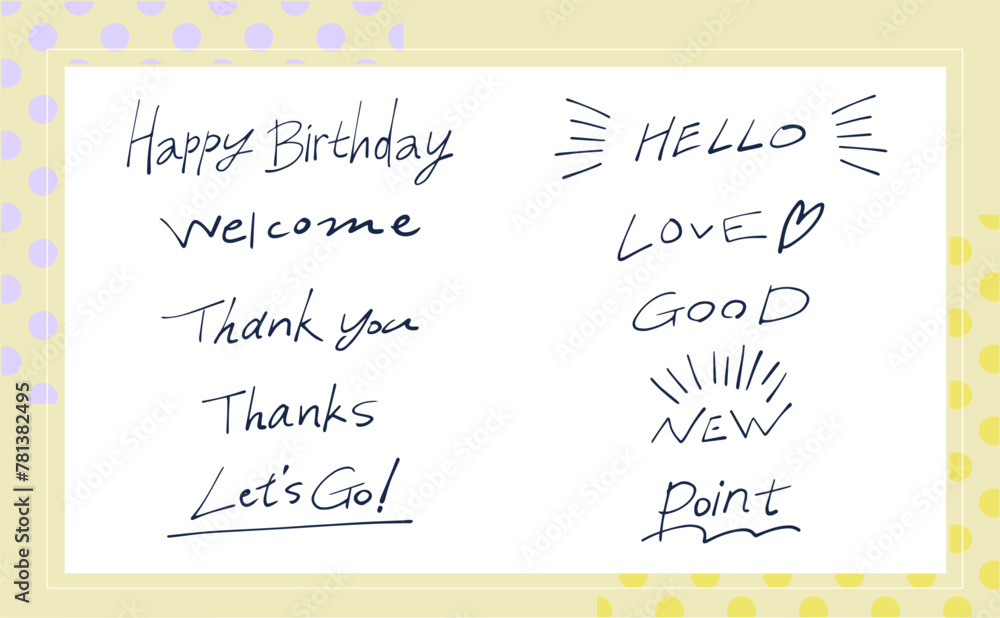 Happy Birthday
Welcome
Thank you
Thanks
Let's Go!
HELLO
LOVE♡
GOOD
NEW
Point
Adobe Stock | #781382495